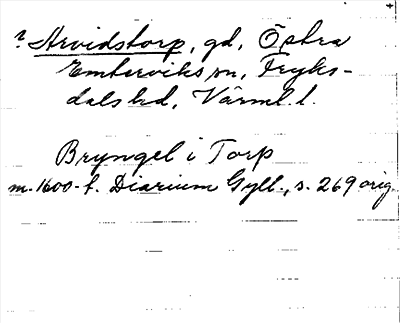 ? Arvidstorp, gd, Östra
Emterviks sn, Fryks-
dals hd, Värml. l.
Bryngel i Torp
m. 1600-t. Diarium Gyll., s. 269 orig.